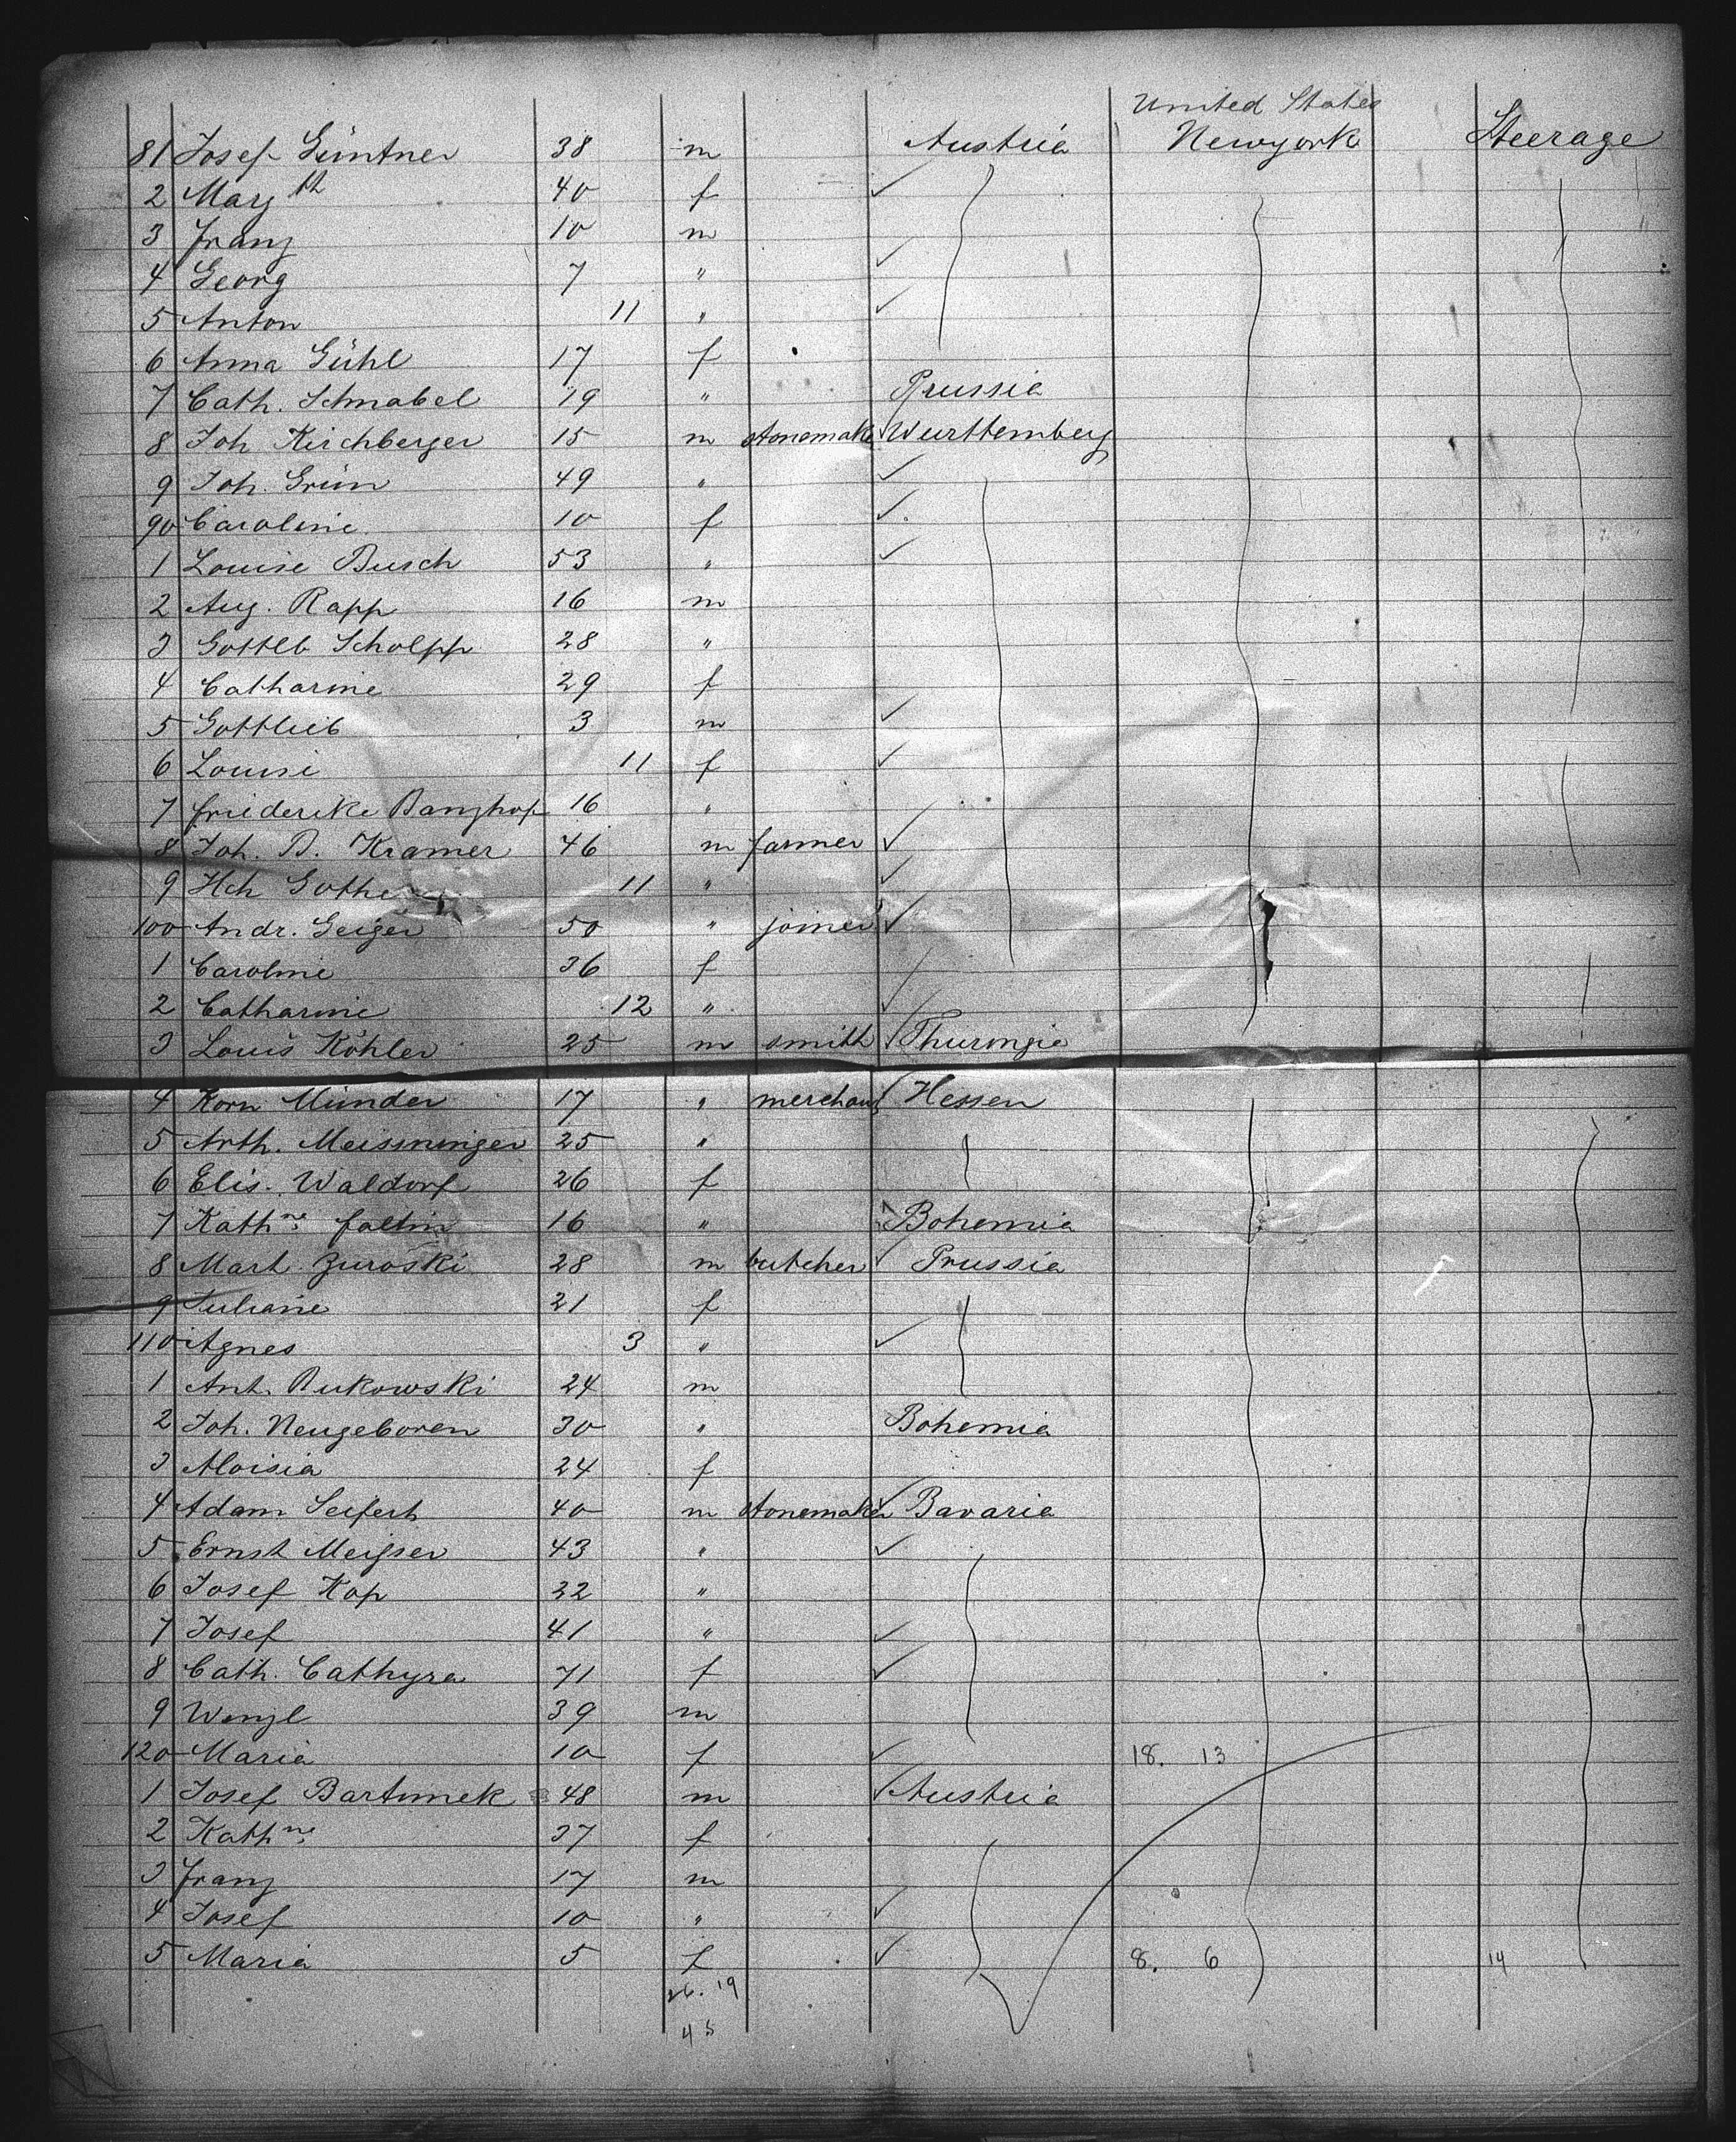 United States
81 Josef Güntner 38 m Austria Newyork Steerage
2 Marg th 40 f
3 Franz 10 m
4 Georg 7 "
5 Anton 11 "
6 Anna Gühl 17 f
7 Cath. Schnabel 19 " Prussia
8 Joh Kirchberger 15 m stonemaker Wurttemberg
9 Joh. Grün 49 "
90 Caroline 10 f
1 Louise Busch 53 "
2 Aug. Rapp 16 m
3 Gottlb Scholpp 28 "
4 Catharine 29 f
5 Gottlieb 3 m
6 Louise 11 f
7 Friederike Banzhaf 16 "
8 Joh. D. Kramer 46 m farmer
9 Hch Gothe 11 "
100 Andr. Geiger 50 " joiner
1 Caroline 36 f
2 Catharine 12 "
3 Louis Köhler 25 m smith Thuringia
4 Korn Münder 17 " merchant Hessen
5 Arth. Meisminger 25 "
6 Elis. Waldorf 26 f
7 Kath ne faltin 16 " Bohemia
8 Mart. Zuroski 28 m butcher Prussia
9 Juliane 21 f
110 Agnes 3 "
1 Ant. Bukowski 24 m
2 Joh. Neugeboren 30 " Bohemia
3 Aloisia 24 f
4 Adam Seifert 40 m stonemaker Bavaria
5 Ernst Meißer 43 "
6 Josef Kop 32 "
7 Josef 41 "
8 Cath. Cathyra 71 f
9 Wenzl 39 m
120 Maria 10 f 18. 13
1 Josef Bartunek 48 m Austria
2 Kath ne 37 f
3 Franz 17 m
4 Josef 10 "
5 Maria 5 f 8. 6 14
26. 19
45